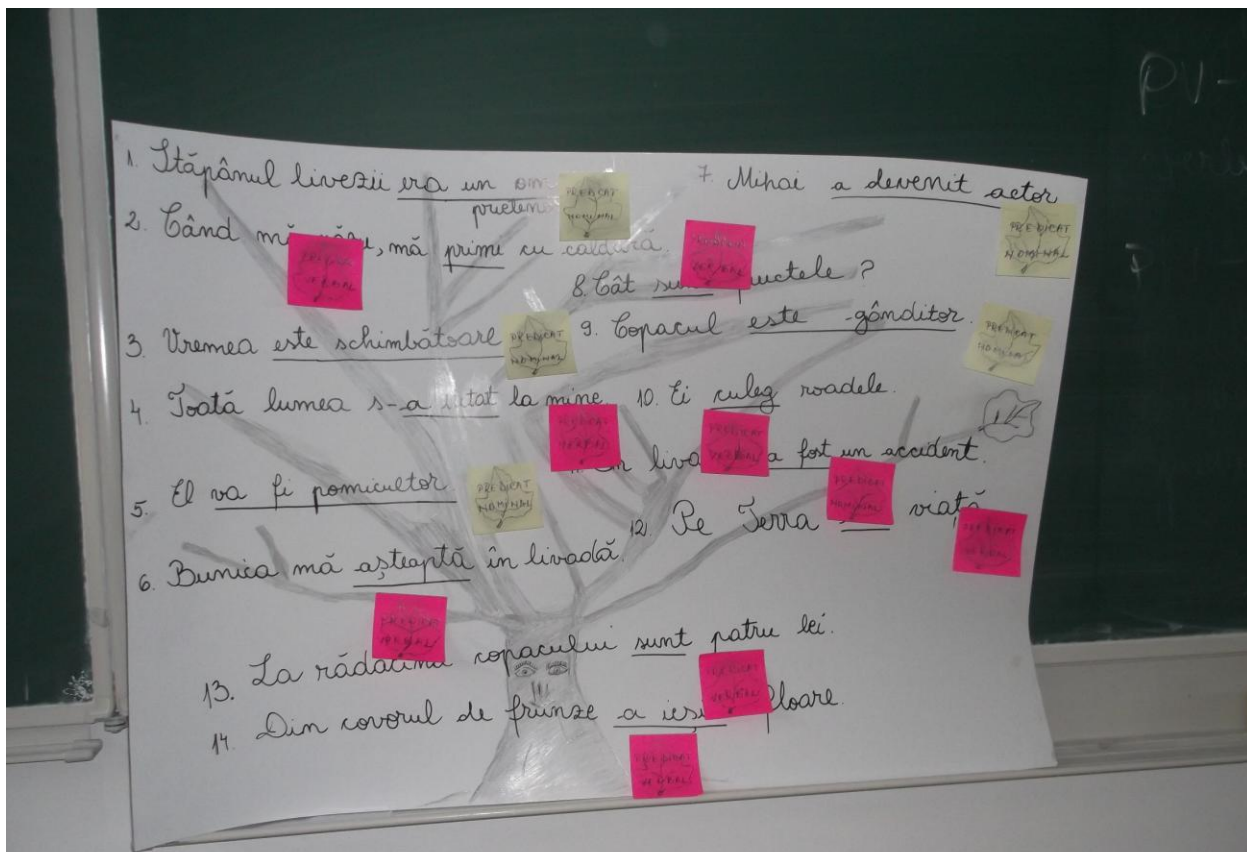 PV-
1. Stăpânul livezii era un om
prieteno
PREDICAT
NOMINAL
2. Când mă, mă prime cu căldură.
PREDICAT
VERBAL
3. Vremea este schimbătoare
PREDICAT
NOMINAL
4. Toată lumea s-a uitat la mine.
PREDICAT
VERBAL
5. El va fi pomicultor
PREDICAT
NOMINAL
6. Bunica mă așteaptă în livadă.
PREDICAT
VERBAL
7. Mihai a devenit actor
PREDICAT
NOMINAL
8. Cât sunt punctele?
PREDICAT
VERBAL
9. Copacul este gânditor.
PREDICAT
NOMINAL
10. Ei culeg roadele.
PREDICAT
VERBAL
a fost un accident.
PREDICAT
NOMINAL
12. Pe Terra viață
PREDICAT
VERBAL
13. La rădăcina copacului sunt patru lei.
PREDICAT
VERBAL
14. Din covorul de frunze a ieși floare.
PREDICAT
VERBAL